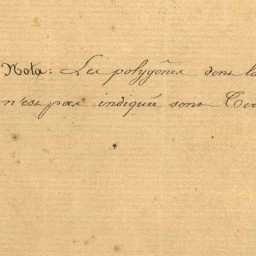 Nota: Les polygônes dont la
n'est pas indiquée sont